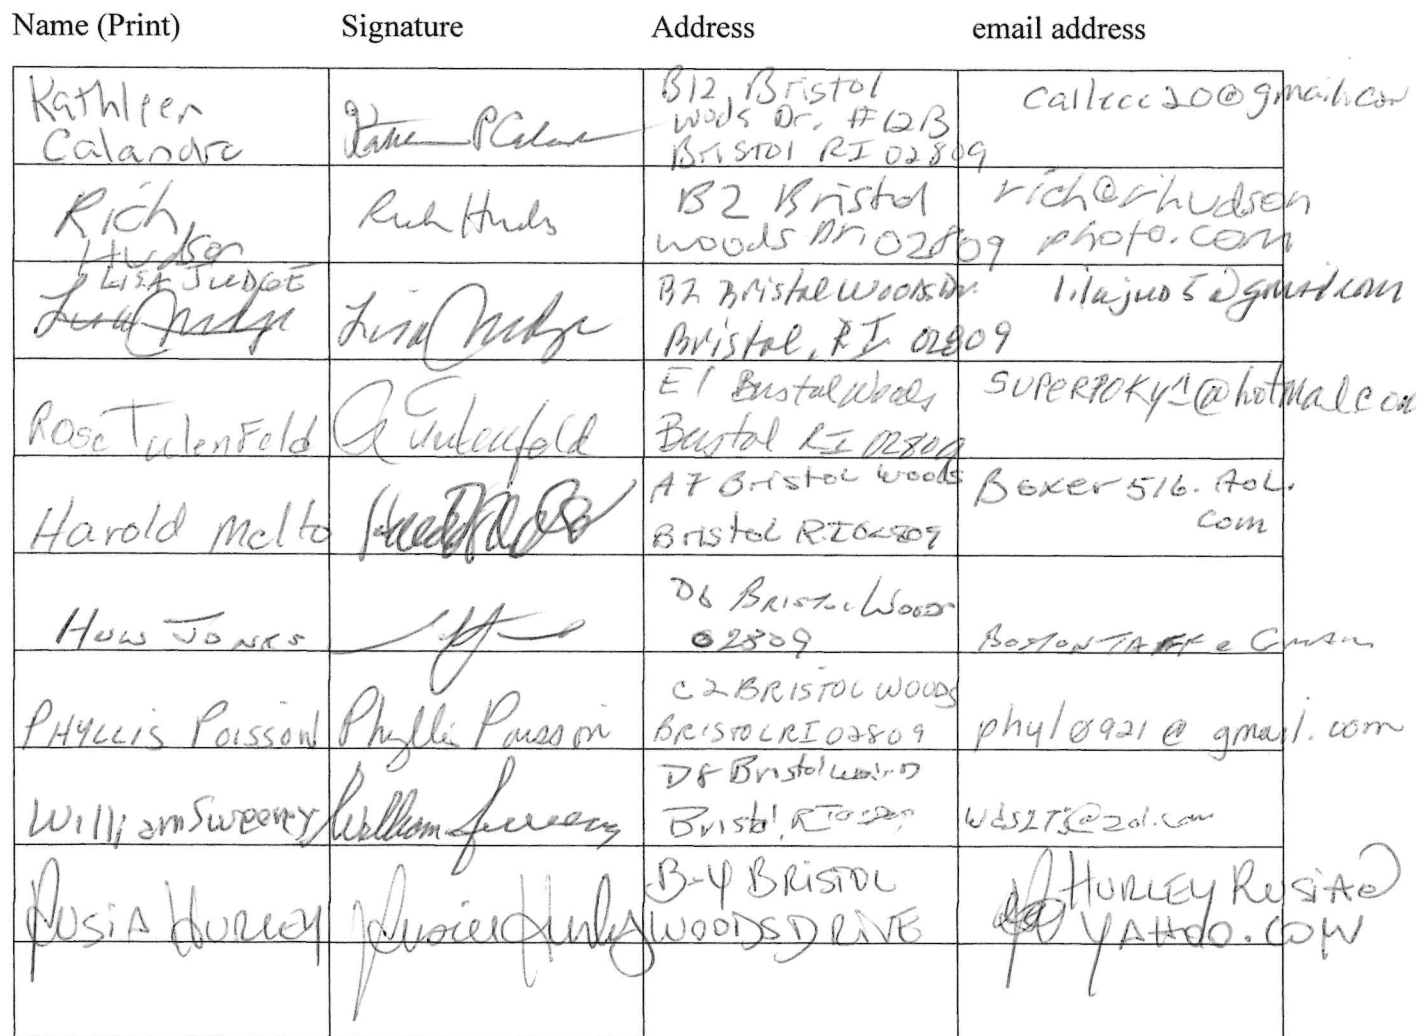 Name (Print) Signature Address email address
Kathleen
Calandra
B12 Bristol
Woods Dr. #12B
Bristol RI 02809
Rich
Hudson
Rich Hudson
B2 Bristol
Woods Dr. 02809
rich@rhudson
photo.com
LISA JUDGE
Lisa Judge
Lisa Judge
B2 Bristol Woods Dr.
Bristol, RI. 02809
Rose TulenFeld
E1 Bristol Woods
Bristol RI 02809
SUPERPOKY1@hotmail.com
Harold Melto
A7 Bristol Woods
Bristol RI 02809
Boxer516.AOL.
com
HUW JONES
D6 BRISTOL WOODS
02809
PHYLLIS POISSON
Phyllis Poisson
C2 BRISTOL WOODS
BRISTOL RI 02809
phyl0921@gmail.com
William Sweeney
William Sweeney
D8 Bristol
Bristol, RI
RUSIA HURLEY
B-4 BRISTOL
WOODS DRIVE
HURLEY RUSIA@
YAHOO.COM